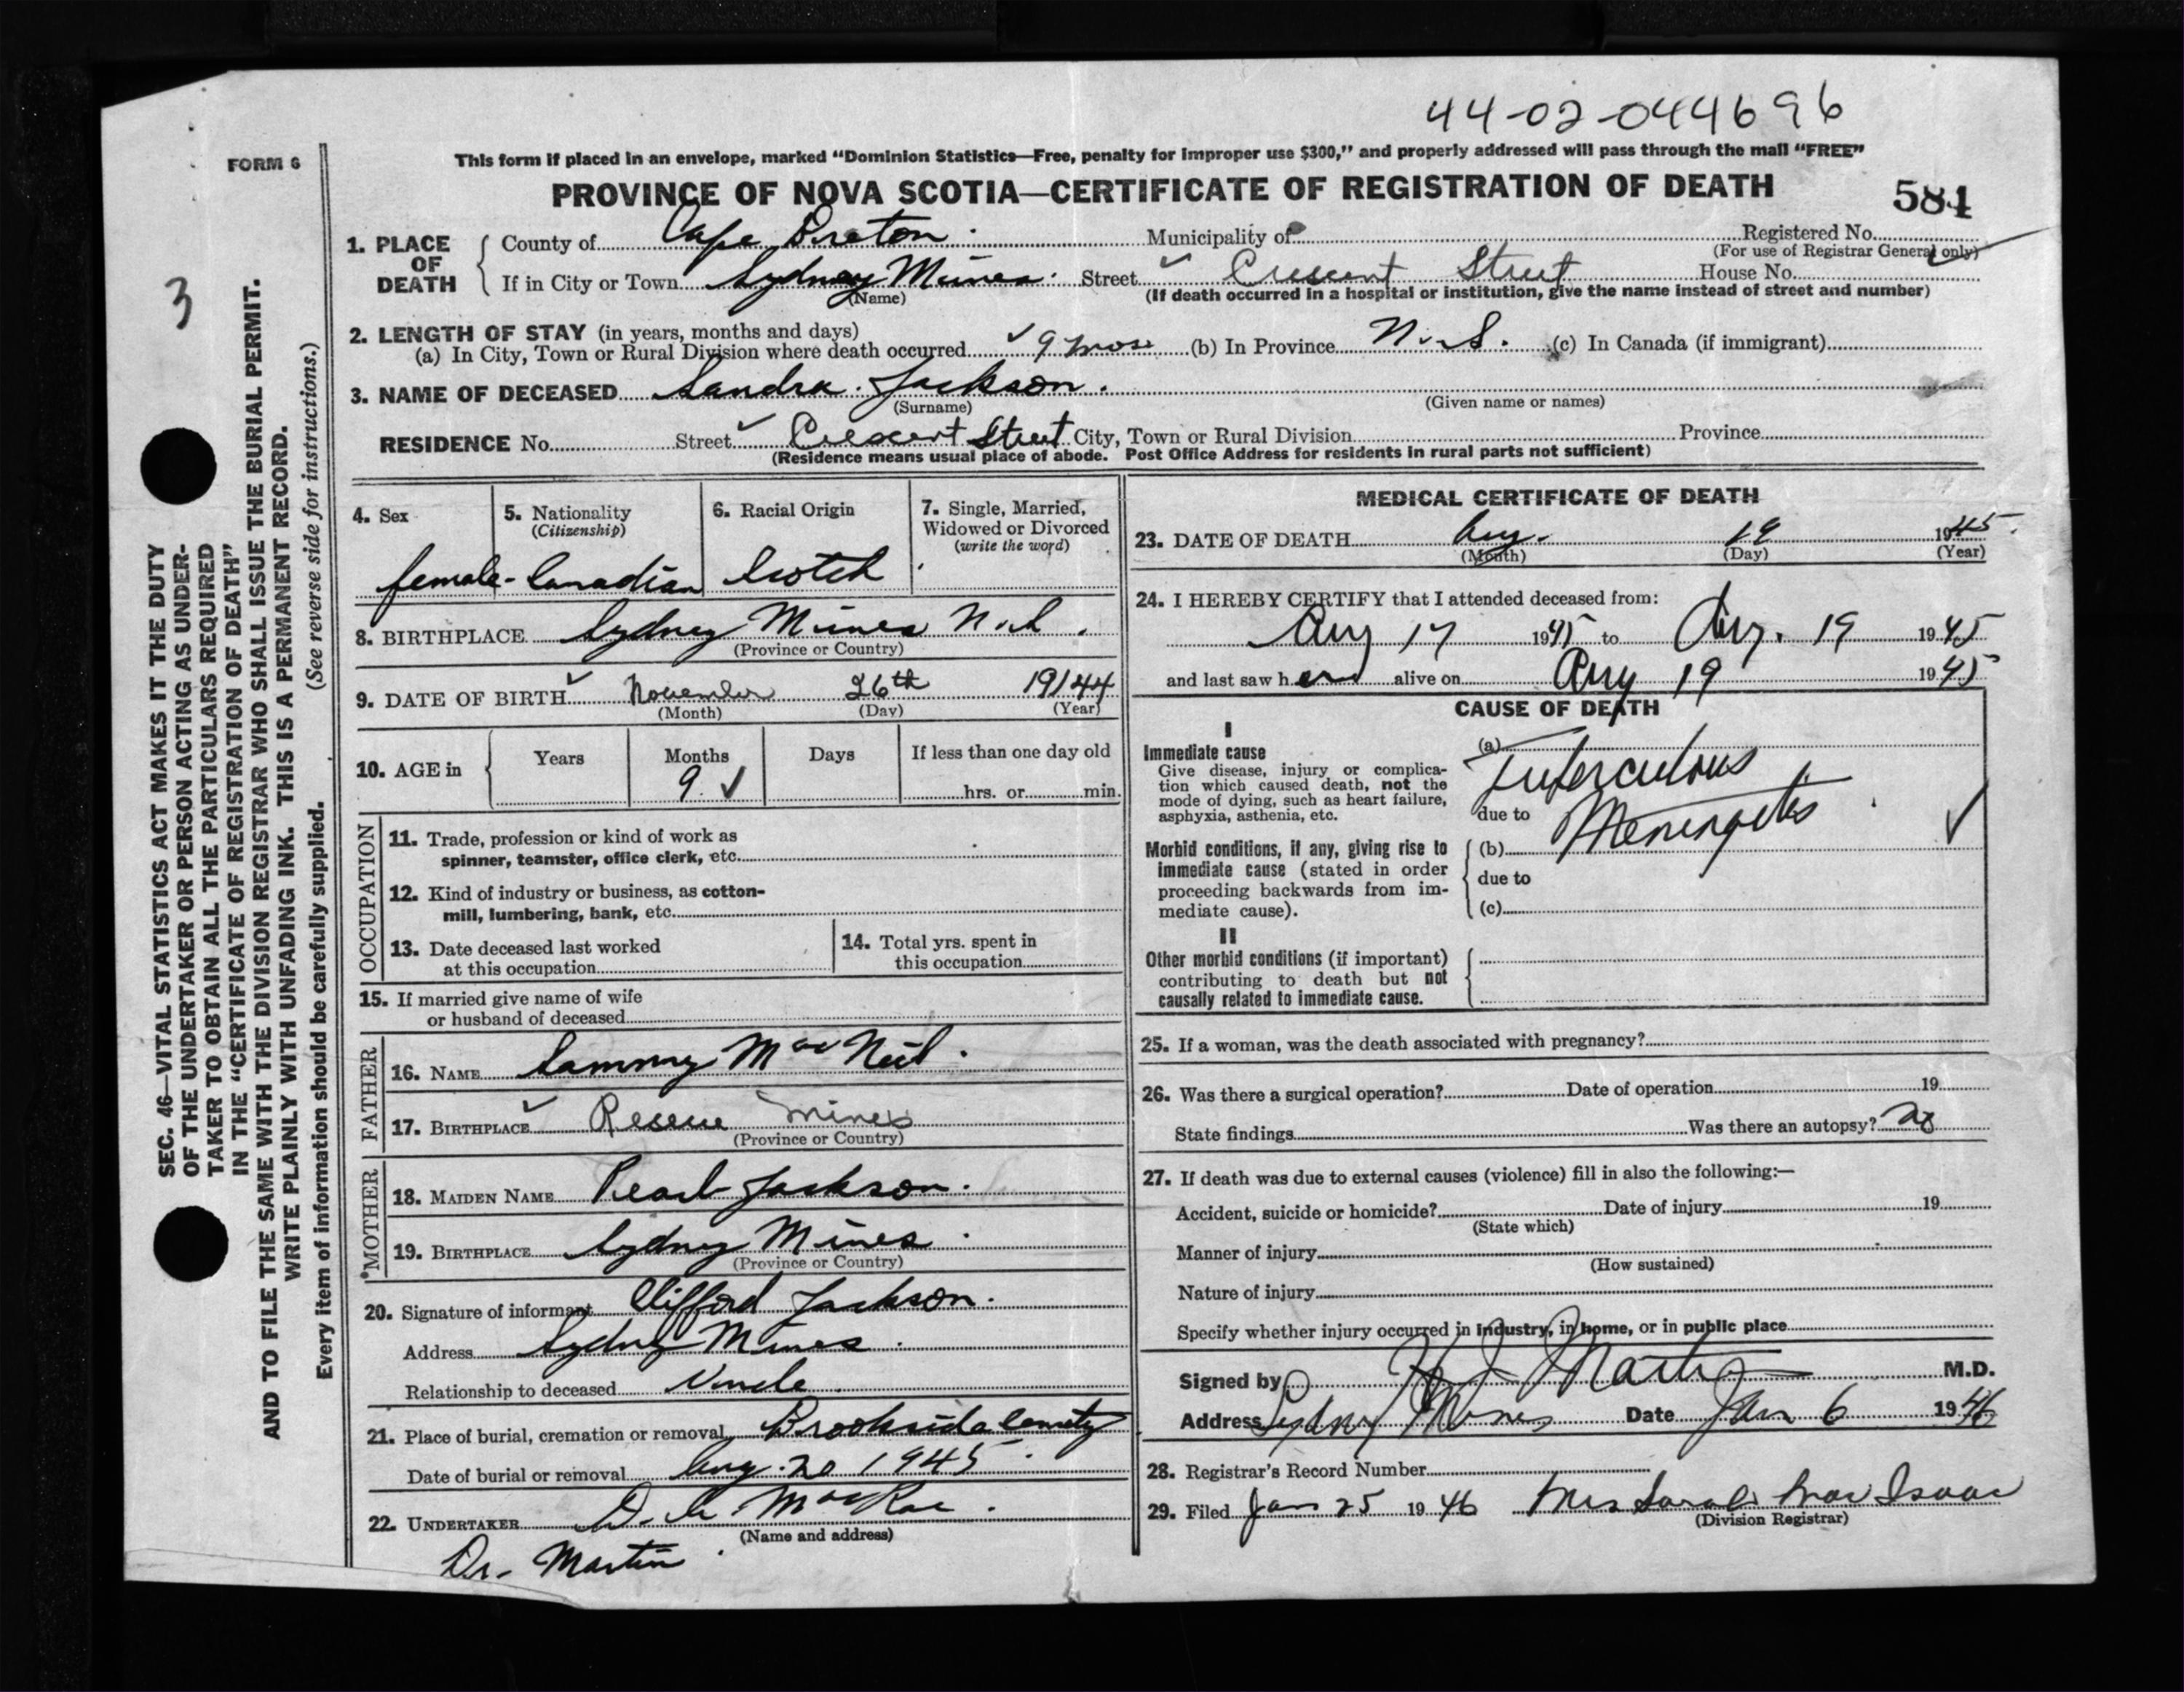 44-02-044696
FORM 6
This form if placed in an envelope, marked "Dominion Statistics—Free, penalty for improper use $300," and properly addressed will pass through the mail "FREE"
PROVINCE OF NOVA SCOTIA—CERTIFICATE OF REGISTRATION OF DEATH
584
1. PLACE OF DEATH
County of Cape Breton. Municipality of Registered No.
(For use of Registrar General only)
If in City or Town Sydney Mines. Street Crescent Street House No.
(Name) (If death occurred in a hospital or institution, give the name instead of street and number)
2. LENGTH OF STAY (in years, months and days)
(a) In City, Town or Rural Division where death occurred 9 mos. (b) In Province N.S. (c) In Canada (if immigrant)
3. NAME OF DECEASED Sandra Jackson.
(Surname) (Given name or names)
RESIDENCE No. Street Crescent Street City, Town or Rural Division Province
(Residence means usual place of abode. Post Office Address for residents in rural parts not sufficient)
3
SEC. 46—VITAL STATISTICS ACT MAKES IT THE DUTY
OF THE UNDERTAKER OR PERSON ACTING AS UNDER-
TAKER TO OBTAIN ALL THE PARTICULARS REQUIRED
IN THE "CERTIFICATE OF REGISTRATION OF DEATH"
AND TO FILE THE SAME WITH THE DIVISION REGISTRAR WHO SHALL ISSUE THE BURIAL PERMIT.
WRITE PLAINLY WITH UNFADING INK. THIS IS A PERMANENT RECORD.
Every item of information should be carefully supplied. (See reverse side for instructions.)
4. Sex
female
5. Nationality
(Citizenship)
Canadian
6. Racial Origin
Scotch
7. Single, Married,
Widowed or Divorced
(write the word)
8. BIRTHPLACE Sydney Mines N.S.
(Province or Country)
9. DATE OF BIRTH November 26th 19144
(Month) (Day) (Year)
10. AGE in
Years Months Days If less than one day old
9. ✓
hrs. or min.
OCCUPATION
11. Trade, profession or kind of work as
spinner, teamster, office clerk, etc.
12. Kind of industry or business, as cotton-
mill, lumbering, bank, etc.
13. Date deceased last worked
at this occupation
14. Total yrs. spent in
this occupation
15. If married give name of wife
or husband of deceased
FATHER
16. NAME Sammy MacNeil.
17. BIRTHPLACE Reserve Mines
(Province or Country)
MOTHER
18. MAIDEN NAME Pearl Jackson.
19. BIRTHPLACE Sydney Mines.
(Province or Country)
20. Signature of informant Clifford Jackson.
Address Sydney Mines.
Relationship to deceased Uncle
21. Place of burial, cremation or removal Brookside Cemety
Date of burial or removal Aug. 20 1945
22. UNDERTAKER MacRae.
(Name and address)
Dr. Martin
MEDICAL CERTIFICATE OF DEATH
23. DATE OF DEATH Aug. 19 1945.
(Month) (Day) (Year)
24. I HEREBY CERTIFY that I attended deceased from:
Aug 17 1945 to Aug. 19 1945
and last saw her alive on Aug 19 1945
CAUSE OF DEATH
I
Immediate cause
Give disease, injury or complica-
tion which caused death, not the
mode of dying, such as heart failure,
asphyxia, asthenia, etc.
(a) Tuberculous
due to Meningitis
Morbid conditions, if any, giving rise to
immediate cause (stated in order
proceeding backwards from im-
mediate cause).
(b)
due to
(c)
II
Other morbid conditions (if important)
contributing to death but not
causally related to immediate cause.
25. If a woman, was the death associated with pregnancy?
26. Was there a surgical operation? Date of operation 19
State findings Was there an autopsy? No
27. If death was due to external causes (violence) fill in also the following:—
Accident, suicide or homicide? Date of injury 19
(State which)
Manner of injury
(How sustained)
Nature of injury
Specify whether injury occurred in industry, in home, or in public place
Signed by H J Martin M.D.
Address Sydney Mines Date Jan 6 1946
28. Registrar's Record Number
29. Filed Jan 25 1946 Mrs Sarah MacIsaac
(Division Registrar)